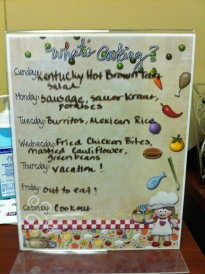 What's Cooking?
Sunday: Kentucky Hot Brown
Salad
Monday: Sausage, Sauer Kraut,
Tuesday: Burritos, Mexican Rice
Wednesday: Fried Chicken Bites,
mashed Cauliflower,
green beans
Thursday: Vacation!
Friday: Out to eat!
Saturday: Cookout